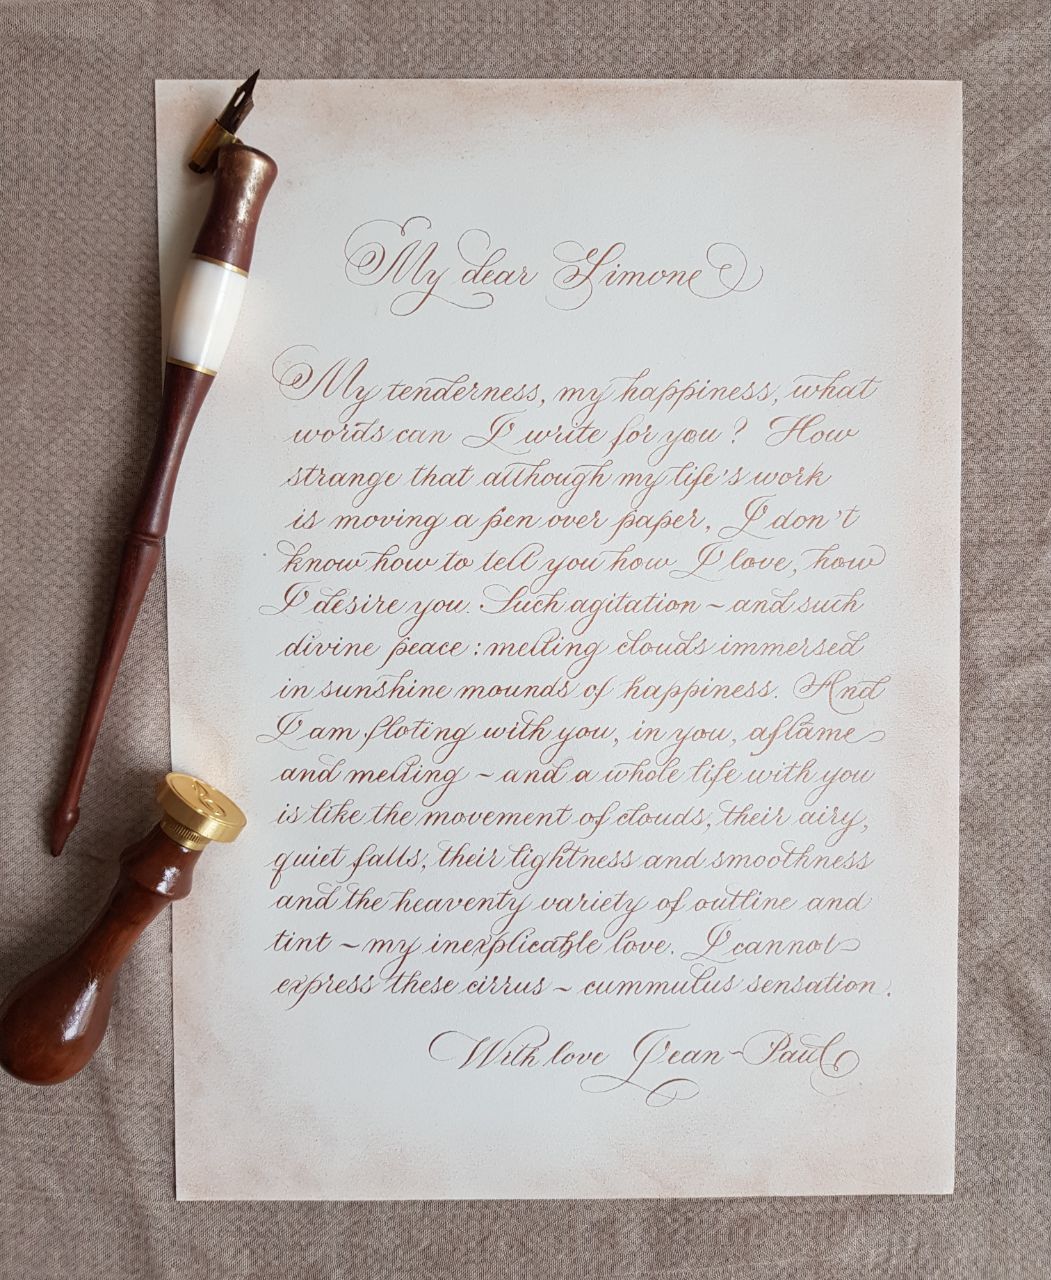 My dear Simone
My tenderness, my happiness, what
words can I write for you? How
strange that although my life's work
is moving a pen over paper, I don't
know how to tell you how I love, how
I desire you. Such agitation ~ and such
divine peace: melting clouds immersed
in sunshine mounds of happiness. And
I am floting with you, in you, aflame
and melting ~ and a whole life with you
is like the movement of clouds, their airy,
quiet falls, their lightness and smoothness
and the heaventy variety of outline and
tint ~ my inexplicable love. I cannot
express these cirrus ~ cummulus sensation.
With love Jean-Paul